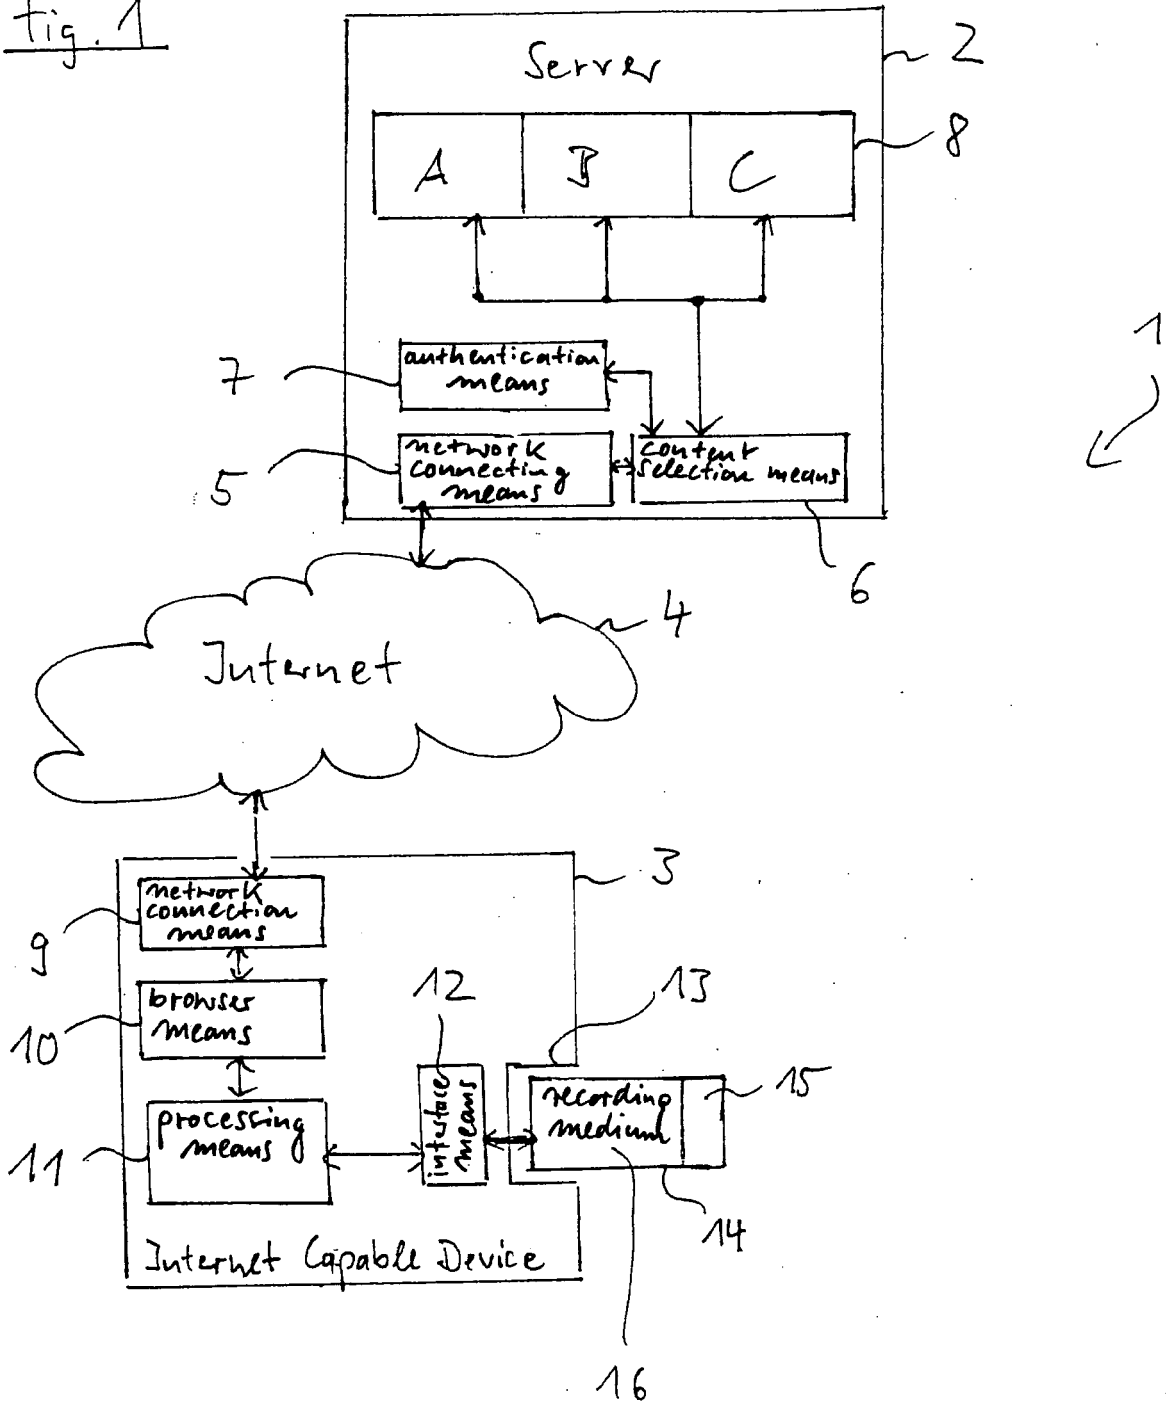 Fig. 1
Server
2
A B C
8
1
authentication
means
7
network
connecting
means
5
content
selection means
6
Internet
4
3
network
connection
means
9
browser
means
10
12
13
processing
means
11
interface
means
recording
medium
15
14
Internet Capable Device
16